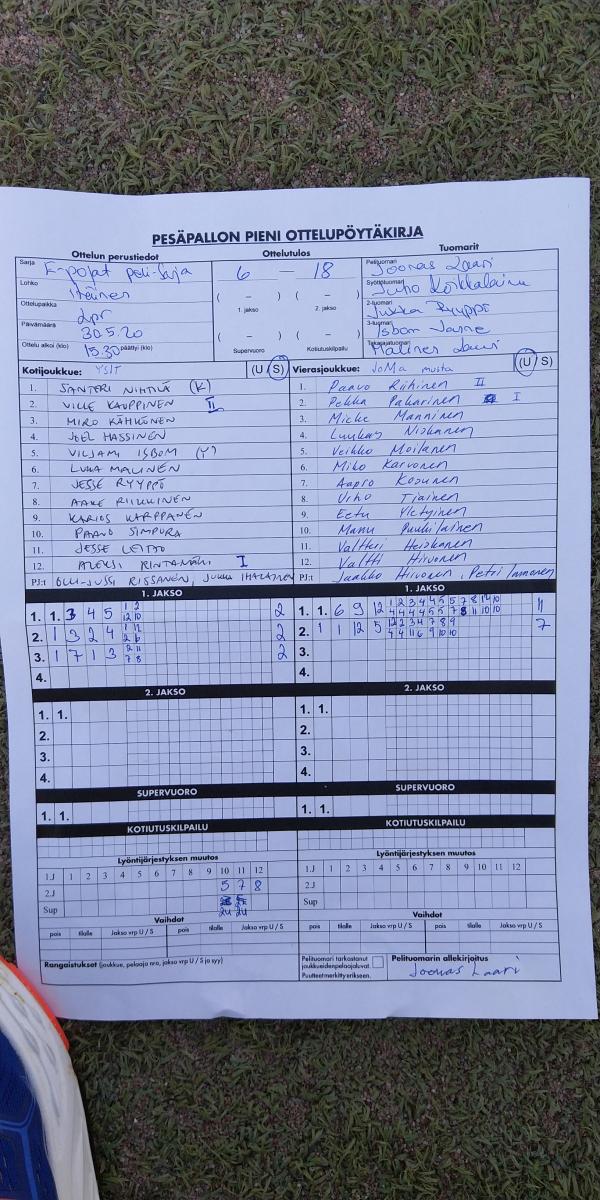 PESÄPALLON PIENI OTTELUPÖYTÄKIRJA
Ottelun perustiedot Ottelutulos Tuomarit
Sarja E-pojat peli-sarja
Lohko Itäinen
Ottelupaikka Lpr
Päivämäärä 30.5.20
Ottelu alkoi (klo) 15.30 päättyi (klo)
6 — 18
( – ) ( – )
1. jakso 2. jakso
( – ) ( – )
Supervuoro Kotiutuskilpailu
Pelituomari Joonas Laari
Syöttötuomari Juho
2-tuomari Jukka Ryyppö
3-tuomari Isbom Janne
Takarajatuomari Malinen
Kotijoukkue: YSIT (U S)
1. SANTERI NIHTILÄ (K)
2. VILLE KAUPPINEN II
3. MIRO KÄHKÖNEN
4. JOEL HASSINEN
5. VILJAMI ISBOM (Y)
6. LUKA MALINEN
7. JESSE RYYPPÖ
8. AAKE RIIKKINEN
9. KARPPANEN
10. PAAVO SIMPURA
11. JESSE LEITTO
12. ALEKSI RINTAMÄKI I
PJ:t OLLI-JUSSI RISSANEN, JUKKA IHALAINEN
Vierasjoukkue: JoMa musta (U S)
1. Paavo Riihinen II
2. Pekka Pakarinen I
3. Micke Manninen
4. Luukas Niskanen
5. Veikko Moilanen
6. Miko Karvonen
7. Aapro Kosunen
8. Urho Tiainen
9. Eetu Yletyinen
10. Manu Puukilainen
11. Valtteri Heiskanen
12. Valtti Hirvonen
PJ:t Jaakko Hirvonen, Petri
1. JAKSO
1. 1. 3 4 5 2
2. 1 3 2 4 2
3. 1 7 1 3 2
4.
1. JAKSO
1. 1. 6 9 12 11
2. 1 1 12 5 7
3.
4.
2. JAKSO
1. 1.
2.
3.
4.
2. JAKSO
1. 1.
2.
3.
4.
SUPERVUORO
1. 1.
SUPERVUORO
1. 1.
KOTIUTUSKILPAILU
KOTIUTUSKILPAILU
Lyöntijärjestyksen muutos
1.J 1 2 3 4 5 6 7 8 9 10 11 12
2.J 5 7 8
Sup
Vaihdot
pois tilalle Jakso vrp U / S pois tilalle Jakso vrp U / S
Lyöntijärjestyksen muutos
1.J 1 2 3 4 5 6 7 8 9 10 11 12
2.J
Sup
Vaihdot
pois tilalle Jakso vrp U / S pois tilalle Jakso vrp U / S
Rangaistukset (joukkue, pelaaja nro, jakso vrp U / S ja syy)
Pelituomari tarkastanut
joukkueiden pelaajaluvat.
Puutteet merkitty erikseen.
Pelituomarin allekirjoitus
Joonas Laari